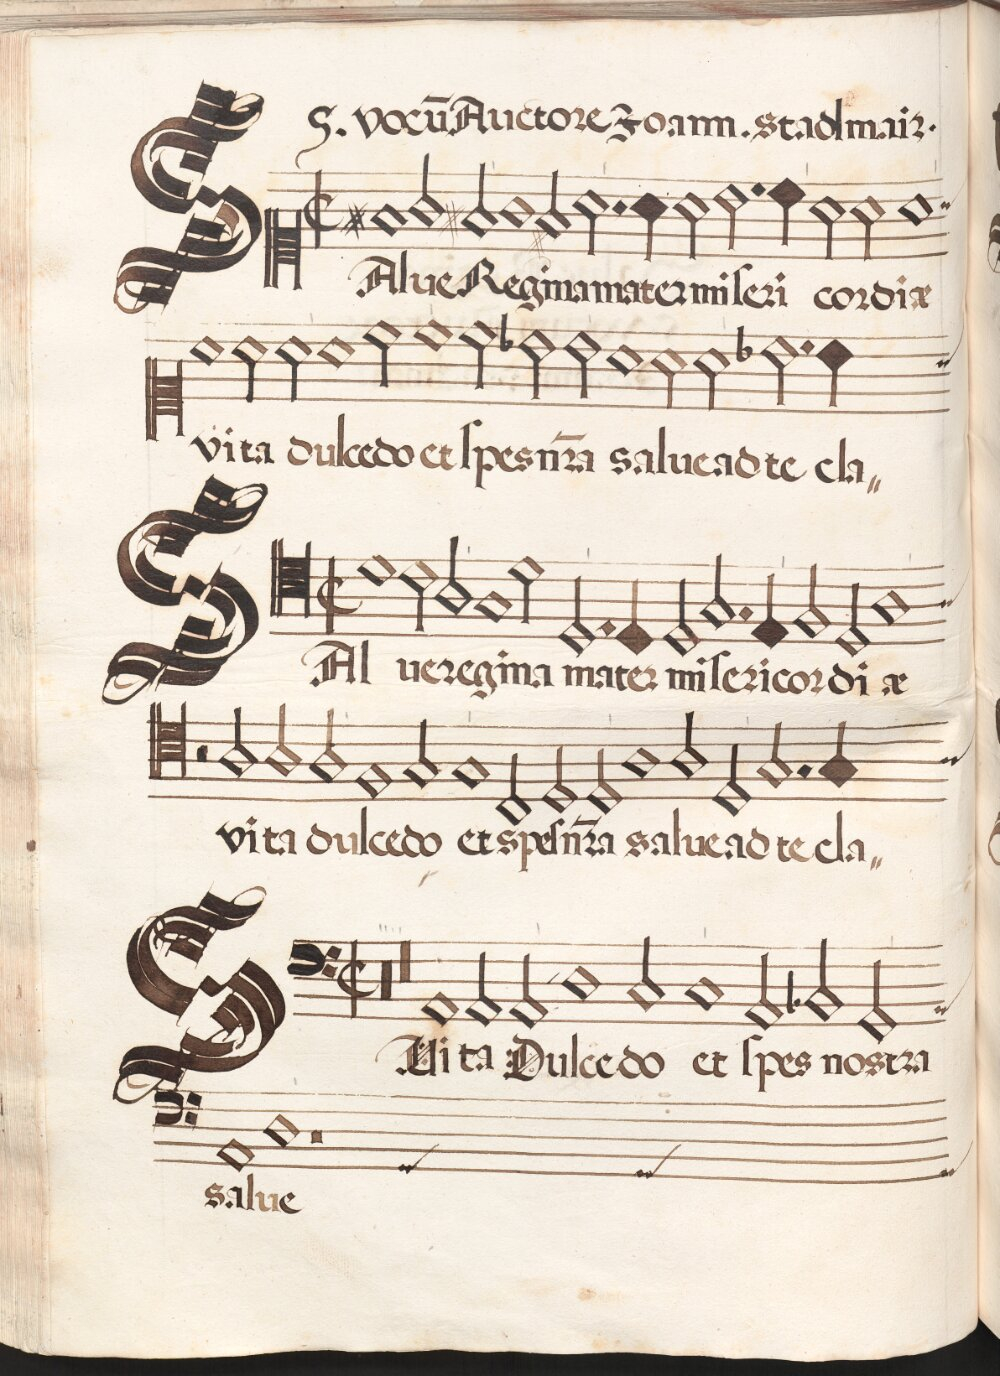 5. vocū Auctore Joann. Stadlmair.
SAlve Regina mater miseri cordiæ
vita dulcedo et spes nr̄a salve ad te cla„
SAl ve regina mater misericordi æ
vita dulcedo et spes nr̄a salve ad te cla„
S
Vita Dulcedo et spes nostra
salve